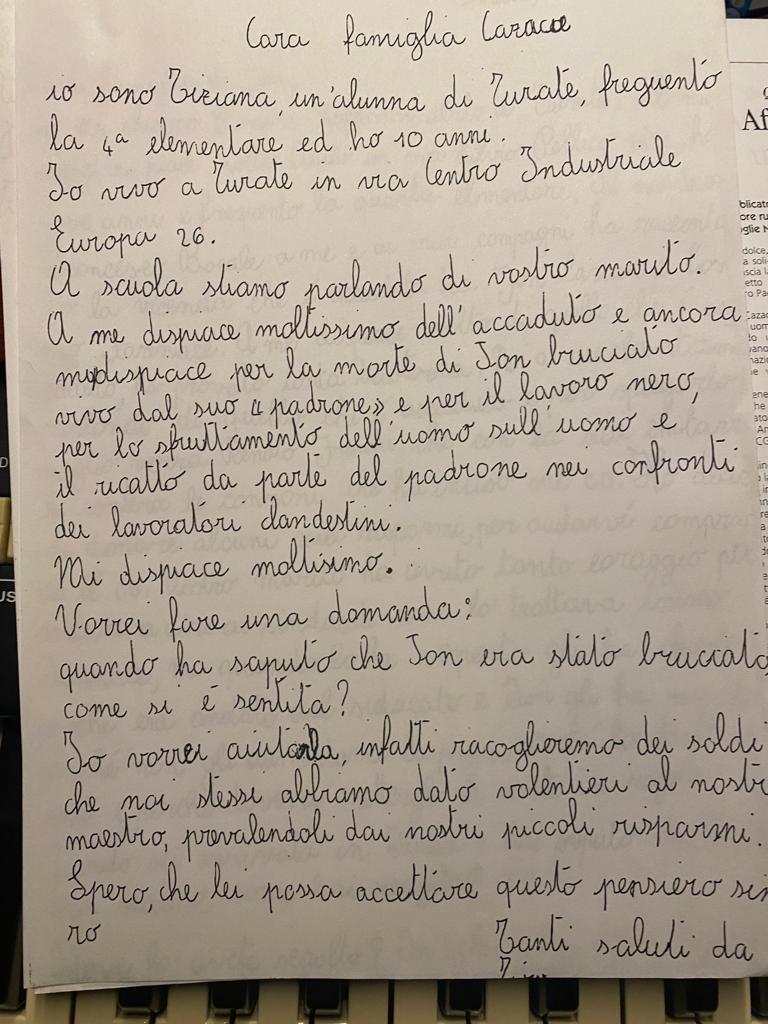 Cara famiglia Cazacu
io sono Tiziana, un'alunna di Turate, freguento
la 4ª elementare ed ho 10 anni.
Io vivo a Turate in via Centro Industriale
Europa 26.
A scuola stiamo parlando di vostro marito.
A me dispiace moltissimo dell'accaduto e ancora
mi dispiace per la morte di Ion bruciato
vivo dal suo «padrone» e per il lavoro nero,
per lo sfruttamento dell'uomo sull'uomo e
il ricatto da parte del padrone nei confronti
dei lavoratori clandestini.
Mi dispiace moltisimo.
Vorrei fare una domanda:
quando ha saputo che Ion era stato brucciato
come si é sentita?
Io vorrei aiutarla, infatti racoglieremo dei soldi
che noi stessi abbiamo dato volentieri al nostr
maestro, prevalendoli dai nostri piccoli risparmi.
Spero, che lei possa accettare questo pensiero sin
ro
Tanti saluti da
Af